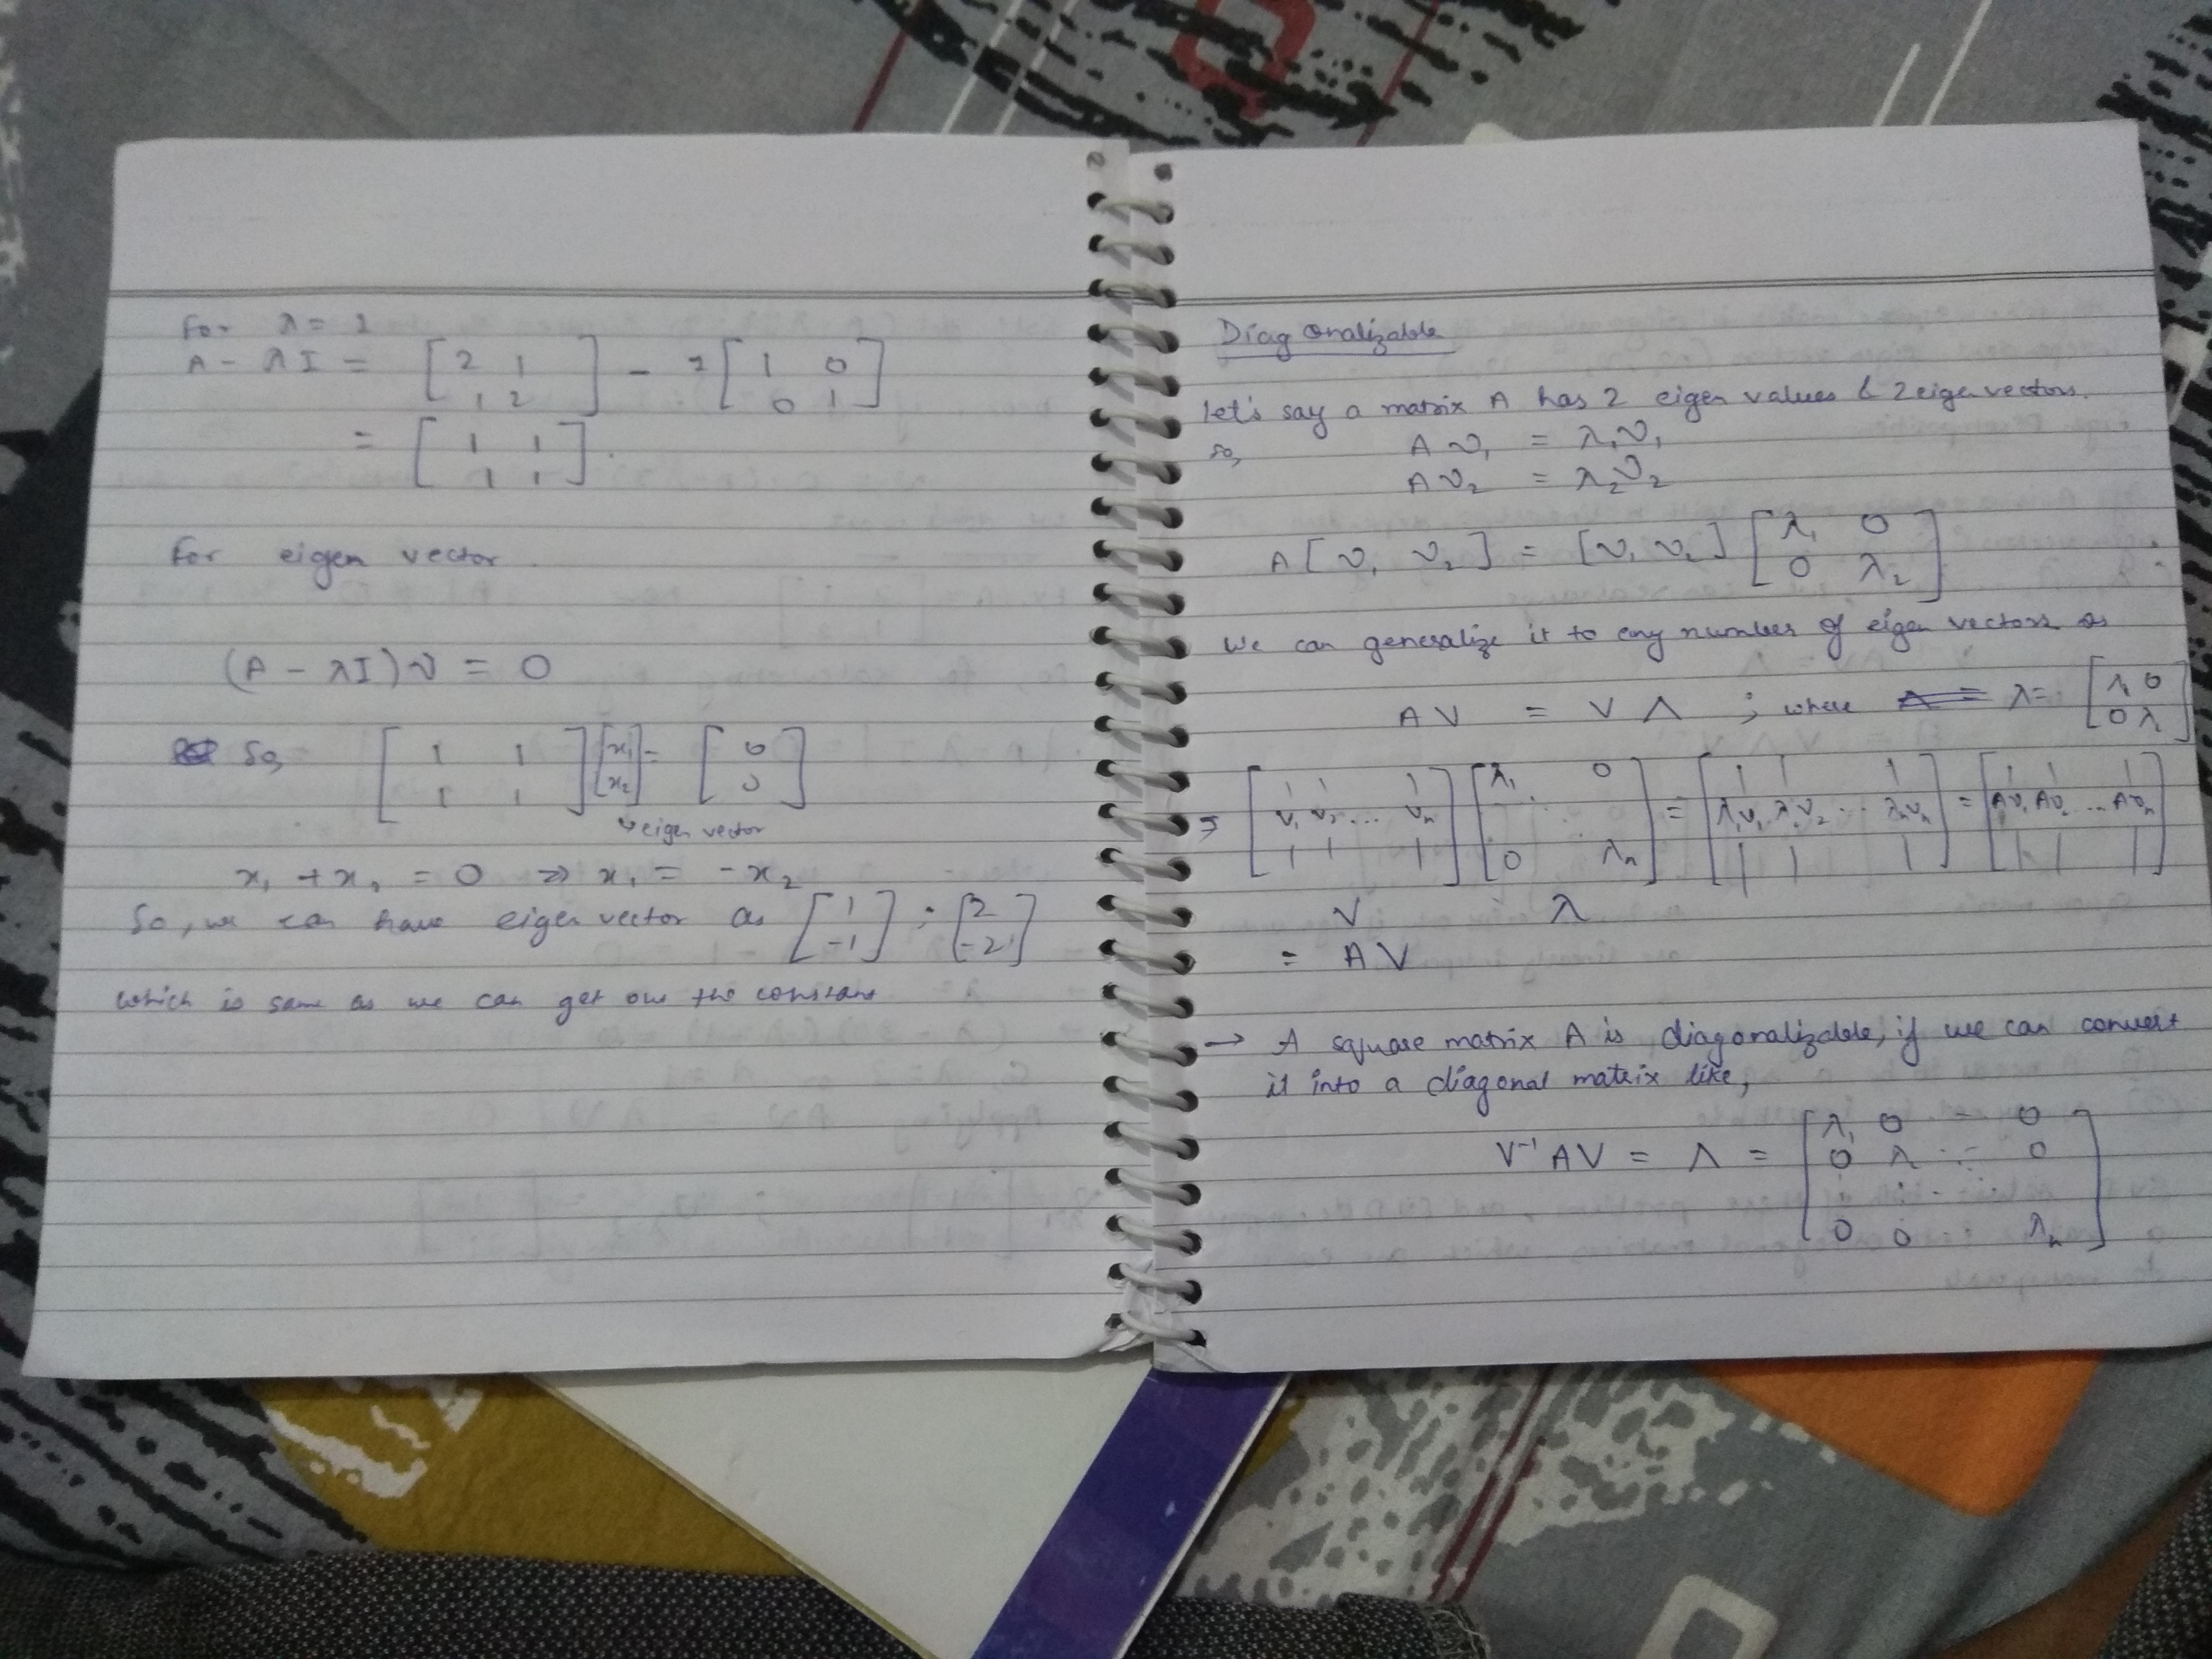 For λ = 1
A - λI = [2 1; 1 2] - 1 [1 0; 0 1]
= [1 1; 1 1].
For eigen vector.
(A - λI)v = 0
So, [1 1; 1 1] [x₁; x₂] = [0; 0]
↳ eigen vector
x₁ + x₂ = 0 => x₁ = -x₂
So, we can have eigen vector as [1; -1] ; [2; -2]
which is same as we can get out the constant
Diagonalizable
let's say a matrix A has 2 eigen values & 2 eigen vectors.
so, A v₁ = λ₁v₁
A v₂ = λ₂v₂
A [v₁ v₂] = [v₁ v₂] [λ₁ 0; 0 λ₂]
We can generalize it to any number of eigen vectors as
A V = V Λ ; where λ = [λ 0; 0 λ]
=> [| | |; v₁ v₂ ... vₙ; | | |] [λ₁ 0; 0 λₙ] = [| | |; λ₁v₁ λ₂v₂ ... λₙvₙ; | | |] = [| | |; Av₁ Av₂ ... Avₙ; | | |]
V λ
= AV
→ A square matrix A is diagonalizable, if we can convert
it into a diagonal matrix like,
V⁻¹ A V = Λ = [λ₁ 0 ... 0; 0 λ ... 0; ⋮ ⋮ ⋱; 0 0 ... λₙ]